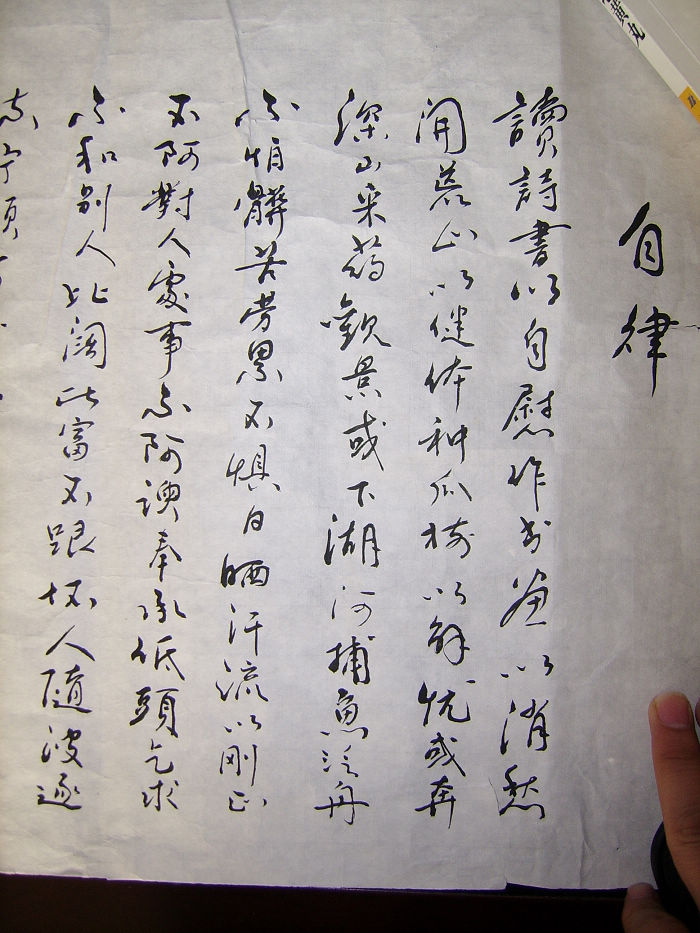 自律
讀詩書以自慰作書畫以消愁
開荒山以健体种瓜樹以解忧或奔
深山采药觀景或下湖河捕魚泛舟
不怕髒苦劳累不惧日晒汗流以刚正
不阿對人處事不阿諛奉承低頭乞求
不和别人比阔比富不跟坏人隨波逐